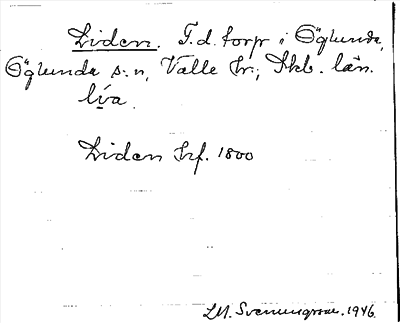 Liden. F.d. torp i Öglunda,
Öglunda s:n, Valle hr; Skb. län.
li̱a.
Liden Hrf. 1800
LM. Svenungsson. 1946.